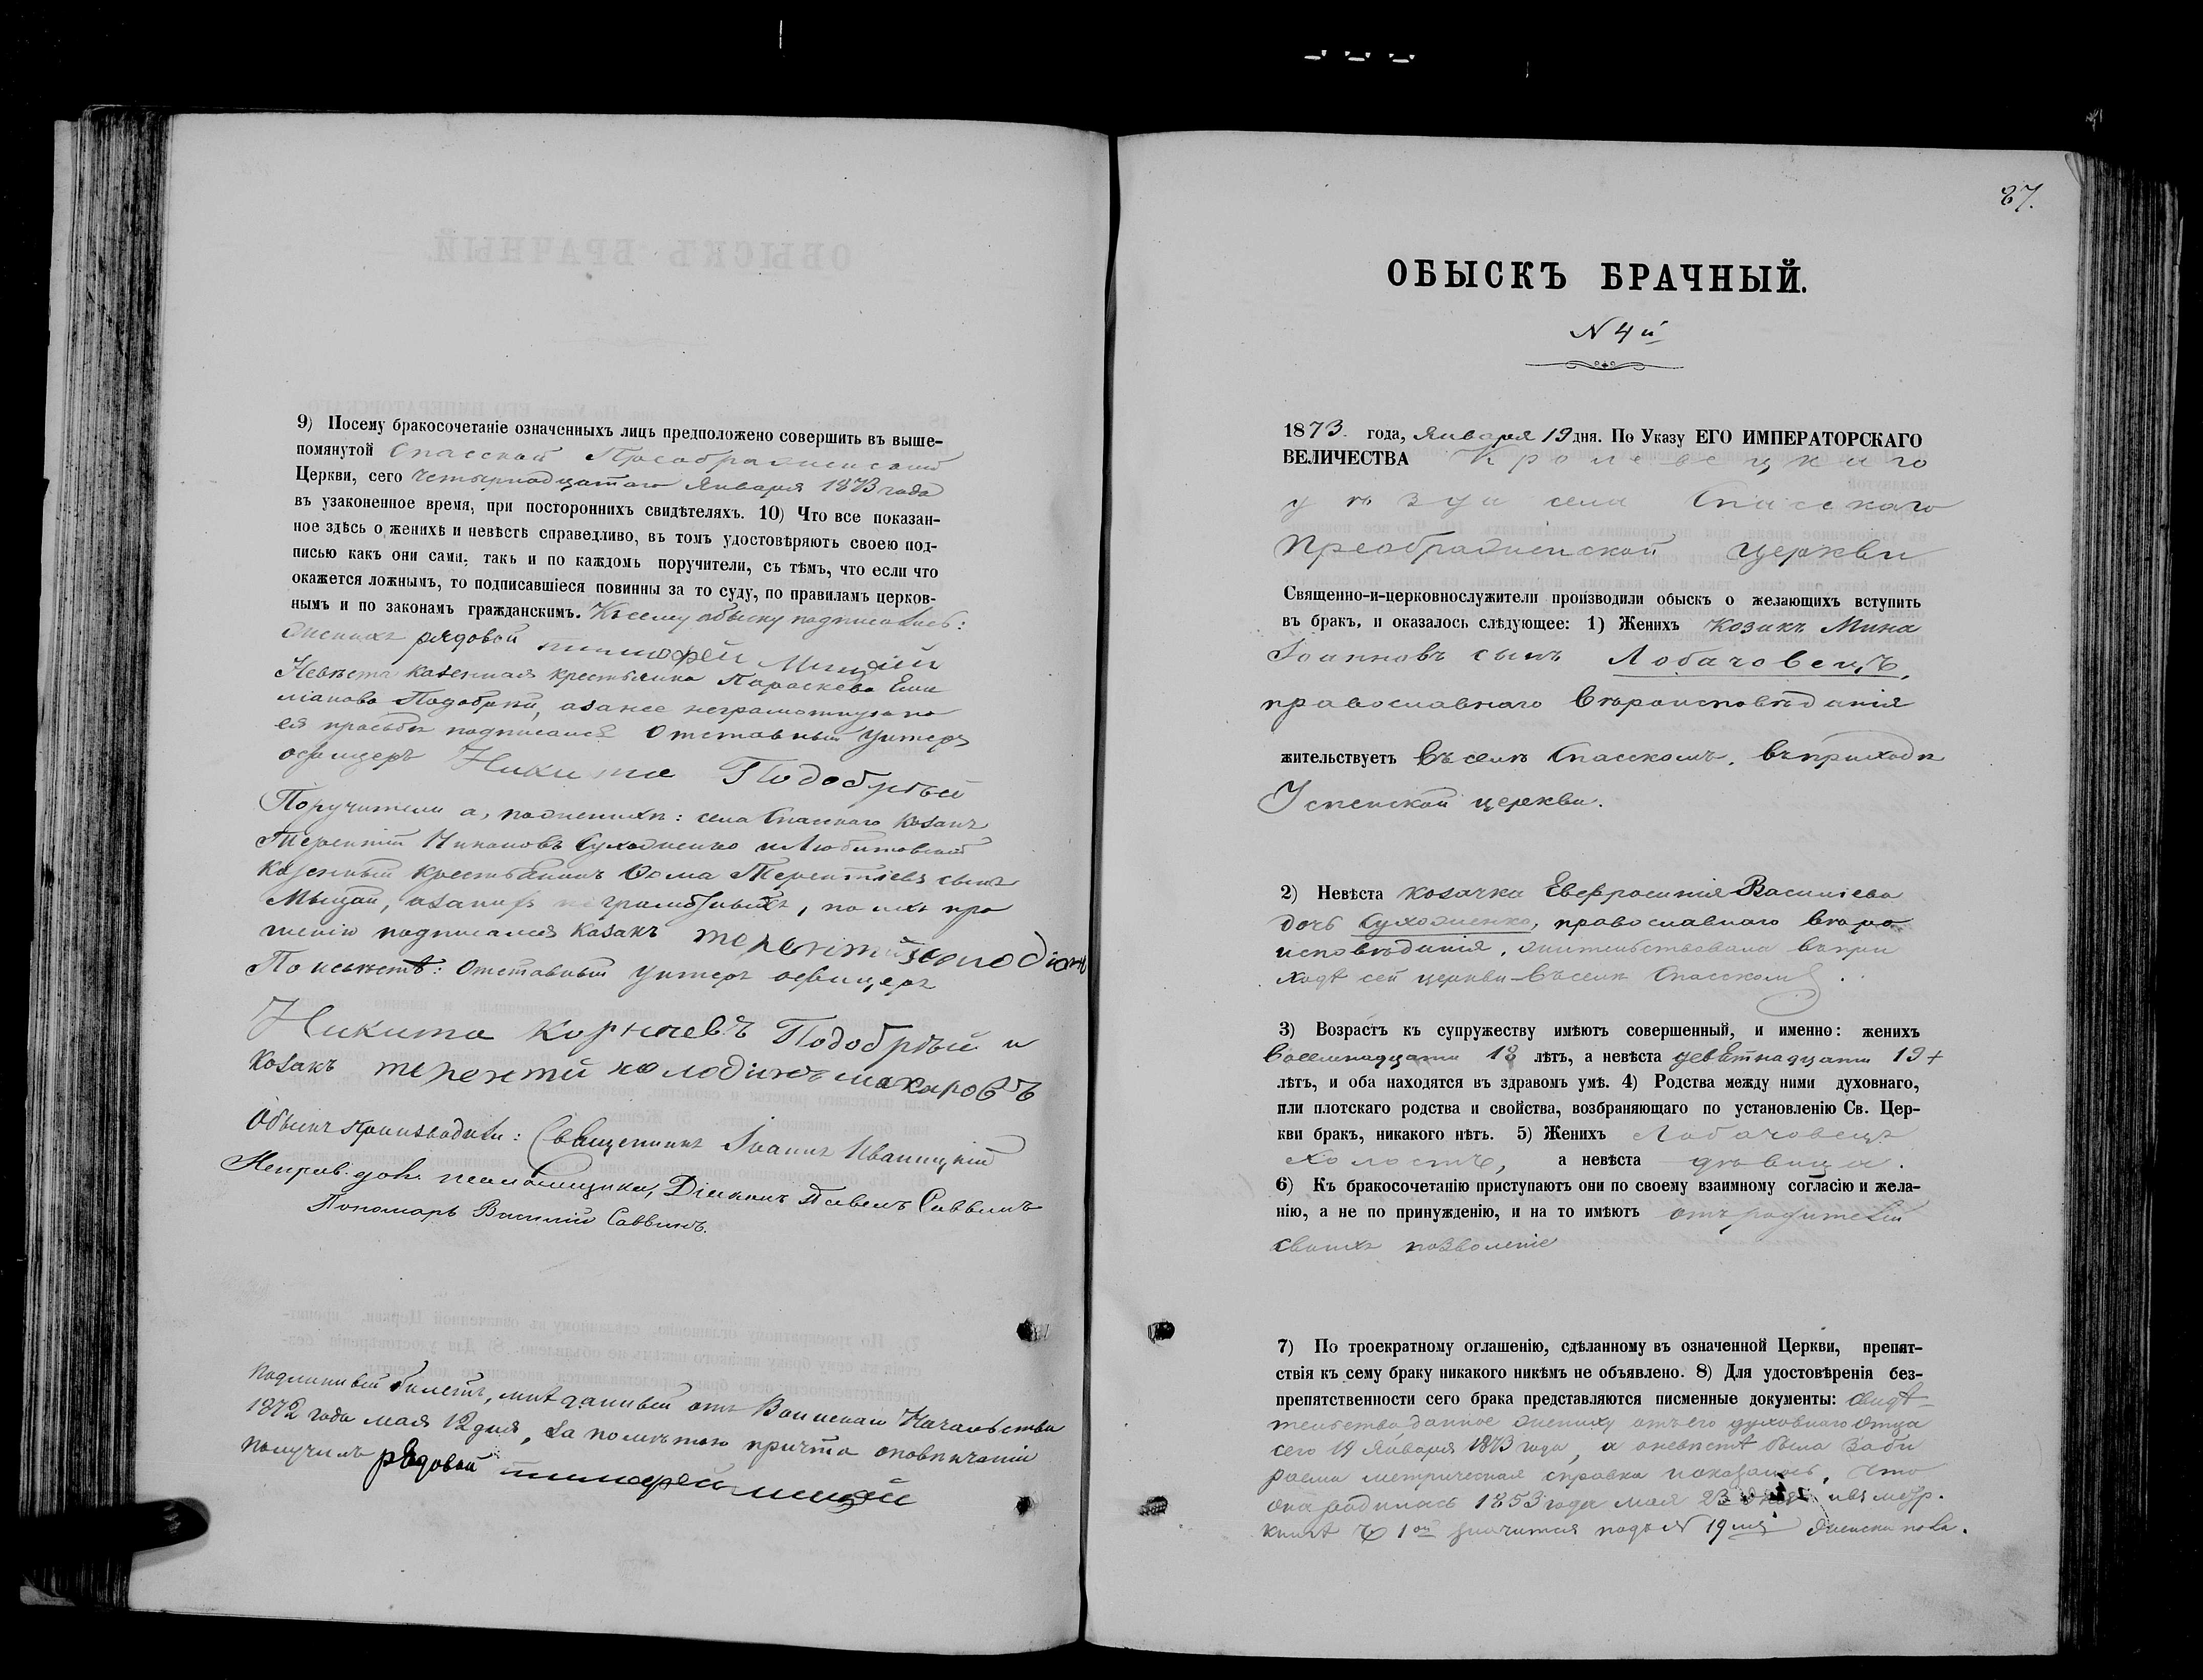 9) Посему бракосочетаніе означенныхъ лицъ предположено совершить въ выше-
помянутой Спасской Преображенской
Церкви, сего четырнадцатаго Января 1873 года
въ узаконенное время, при постороннихъ свидѣтеляхъ. 10) Что все показан-
ное здѣсь о женихѣ и невѣстѣ справедливо, въ томъ удостовѣряютъ своею под-
писью какъ они сами, такъ и по каждомъ поручители, съ тѣмъ, что если что
окажется ложнымъ, то подписавшіеся повинны за то суду, по правиламъ церков-
нымъ и по законамъ гражданскимъ. Къ сему обыску подписались:
Женихъ рядовой тимофей
Невѣста казенная крестьянка Параскева Еми
ліанова, а за нее неграмотную по
ея просьбѣ подписался Отставный Унтеръ
офицеръ Никита Подобрый
Поручители а, по женихѣ: села Спасскаго козакъ
Терентій Никоновъ Сухоженко и Любитовскій
казенный крестьянинъ Ѳома Терентіевъ сынъ
а за нихъ неграмотныхъ, по ихъ про
шенію подписался Козакъ терентий
По невѣстѣ: Отставный Унтеръ офицеръ
Никита Корнѣевъ Подобрый и
Козакъ терентий колодинъ макаровъ
Обыскъ производили: Священникъ Іоаннъ Иваницкій
Исправ. долж. псаломщика, Діаконъ Павелъ Саввинъ
Пономарь Василій Саввинъ.
Подлинный билетъ, мнѣ данный отъ Воинскаго Начальства
1872 года мая 12 дня, за помѣткою причта о повѣнчаніи
получилъ рядовой тимофей
87.
ОБЫСКЪ БРАЧНЫЙ.
N 4й
1873. года, Января 19 дня. По Указу ЕГО ИМПЕРАТОРСКАГО
ВЕЛИЧЕСТВА Кролевецкаго
уѣзда села Спасскаго
Преображенской Церкви
Священно-и-церковнослужители производили обыскъ о желающихъ вступить
въ бракъ, и оказалось слѣдующее: 1) Женихъ козакъ Мина
Іоанновъ сынъ Лобачовецъ,
православнаго вѣроисповѣданія
жительствуетъ въ селѣ Спасскомъ, въ приходѣ
Успенской церкви.
2) Невѣста козачка Евфросинія Василіева
дочь Сухоженко, православнаго вѣро
исповѣданія, жительствовала въ при
ходѣ сей церкви въ селѣ Спасскомъ.
3) Возрастъ къ супружеству имѣютъ совершенный, и именно: женихъ
восемнадцати 18 лѣтъ, а невѣста девятнадцати 19
лѣтъ, и оба находятся въ здравомъ умѣ. 4) Родства между ними духовнаго,
или плотскаго родства и свойства, возбраняющаго по установленію Св. Цер-
кви бракъ, никакого нѣтъ. 5) Женихъ Лобачовецъ
холостъ, а невѣста дѣвица.
6) Къ бракосочетанію приступаютъ они по своему взаимному согласію и жела-
нію, а не по принужденію, и на то имѣютъ отъ родителей
своихъ позволеніе
7) По троекратному оглашенію, сдѣланному въ означенной Церкви, препят-
ствія къ сему браку никакого никѣмъ не объявлено. 8) Для удостовѣренія без-
препятственности сего брака представляются писменные документы: свидѣ-
тельство, данное жениху отъ его духовнаго отца
сего 19 Января 1873 года, а о невѣстѣ была заби
раема метрическая справка и оказалось, что
она родилась 1853 года мая 23 дня и въ метр.
книгѣ 1ой значится подъ N 19 женска пола.